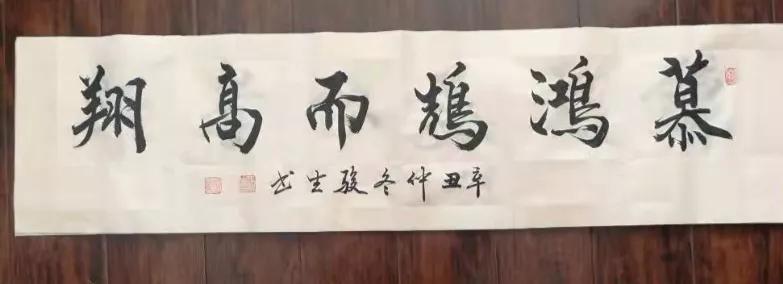 慕鴻鵠而高翔
辛丑仲冬駿生书